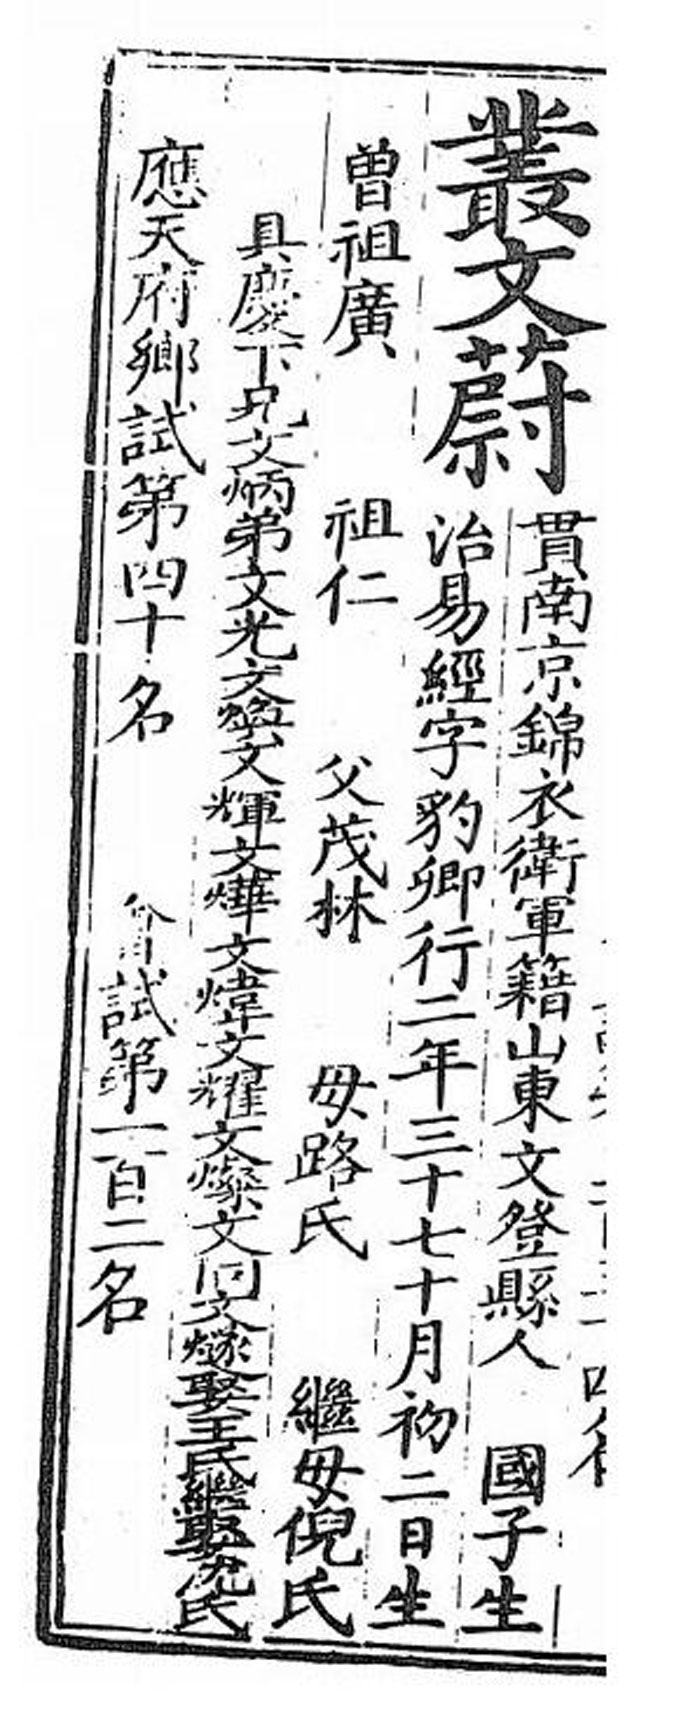 叢文蔚
貫南京錦衣衛軍籍山東文登縣人 國子生
治易經字豹卿行二年三十七十月初二日生
曾祖廣 祖仁 父茂林 母路氏 繼母倪氏
具慶下兄文炳弟文光文 文輝文燁文煒文耀文燦文 文燧娶王氏繼娶 氏
應天府鄉試第四十名 會試第一百二名